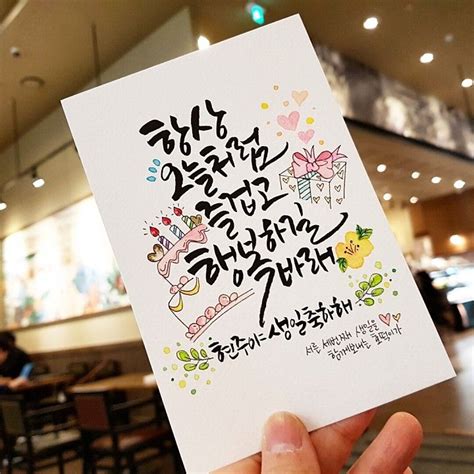 항상
오늘처럼
즐겁고
행복하길
바래
현주야 생일축하해
서른 세번째 생일을
함께보내는 호떡이가